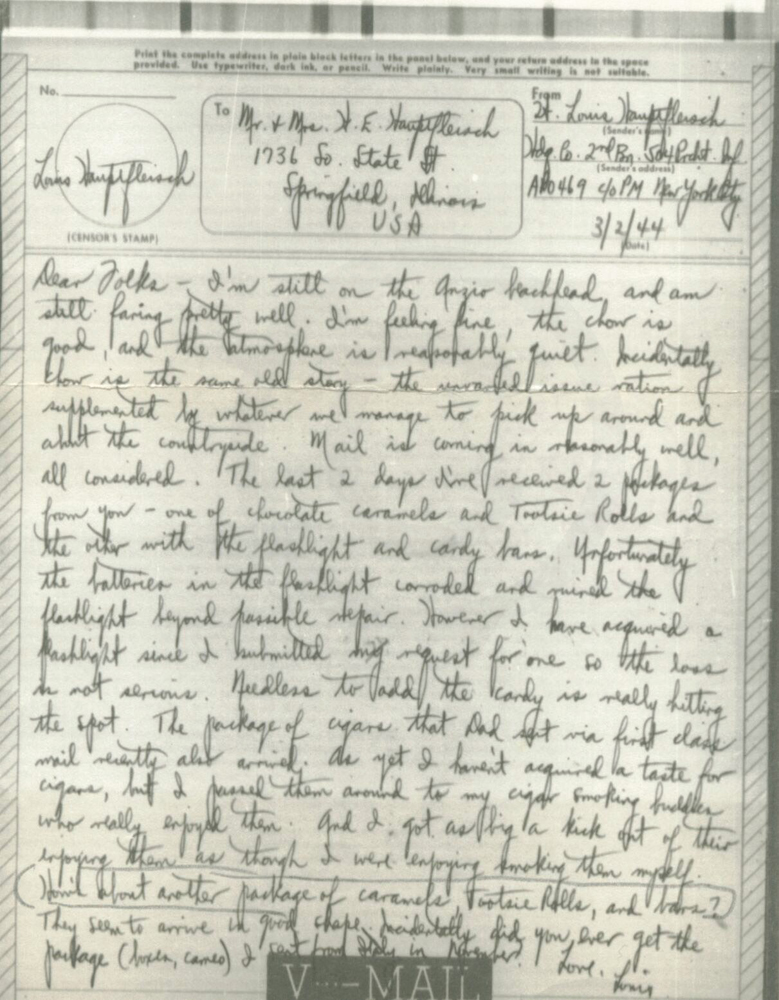 Print the complete address in plain block letters in the panel below, and your return address in the space
provided. Use typewriter, dark ink, or pencil. Write plainly. Very small writing is not suitable.
No.
To
Mr. & Mrs. H. E. Hauptfleisch
1736 So. State St
Springfield, Illinois
USA
From
Lt. Louis Hauptfleisch
(Sender's name)
Hdq. Co. 2nd Bn. 504 Prcht. Inf
(Sender's address)
APO 469 c/o PM New York City
3/2/44
(Date)
Louis Hauptfleisch
(CENSOR'S STAMP)
Dear Folks – I'm still on the Anzio beachhead, and am
still faring pretty well. I'm feeling fine, the chow is
good, and the atmosphere is reasonably quiet. Incidentally
chow is the same old story – the unvaried issue ration
supplemented by whatever we manage to pick up around and
about the countryside. Mail is coming in reasonably well,
all considered. The last 2 days I've received 2 packages
from you – one of chocolate caramels and Tootsie Rolls and
the other with the flashlight and candy bars. Unfortunately
the batteries in the flashlight corroded and ruined the
flashlight beyond possible repair. However I have acquired a
flashlight since I submitted my request for one so the loss
is not serious. Needless to add the candy is really hitting
the spot. The package of cigars that Dad sent via first class
mail recently also arrived. As yet I haven't acquired a taste for
cigars, but I passed them around to my cigar smoking buddies
who really enjoyed them. And I got as big a kick out of their
enjoying them as though I were enjoying smoking them myself.
How's about another package of caramels, Tootsie Rolls, and bars?
They seem to arrive in good shape. Incidentally did you ever get the
package (boxes, cameo) I sent from Italy in November?
Love, Louis
V···–MAIL